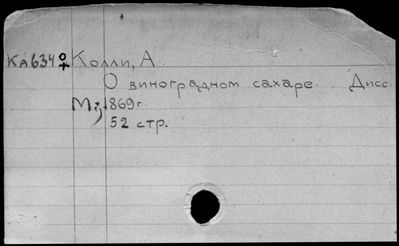 КА634 Колли, А
О виноградном сахаре. Дисс.
М, 1869г
52 стр.